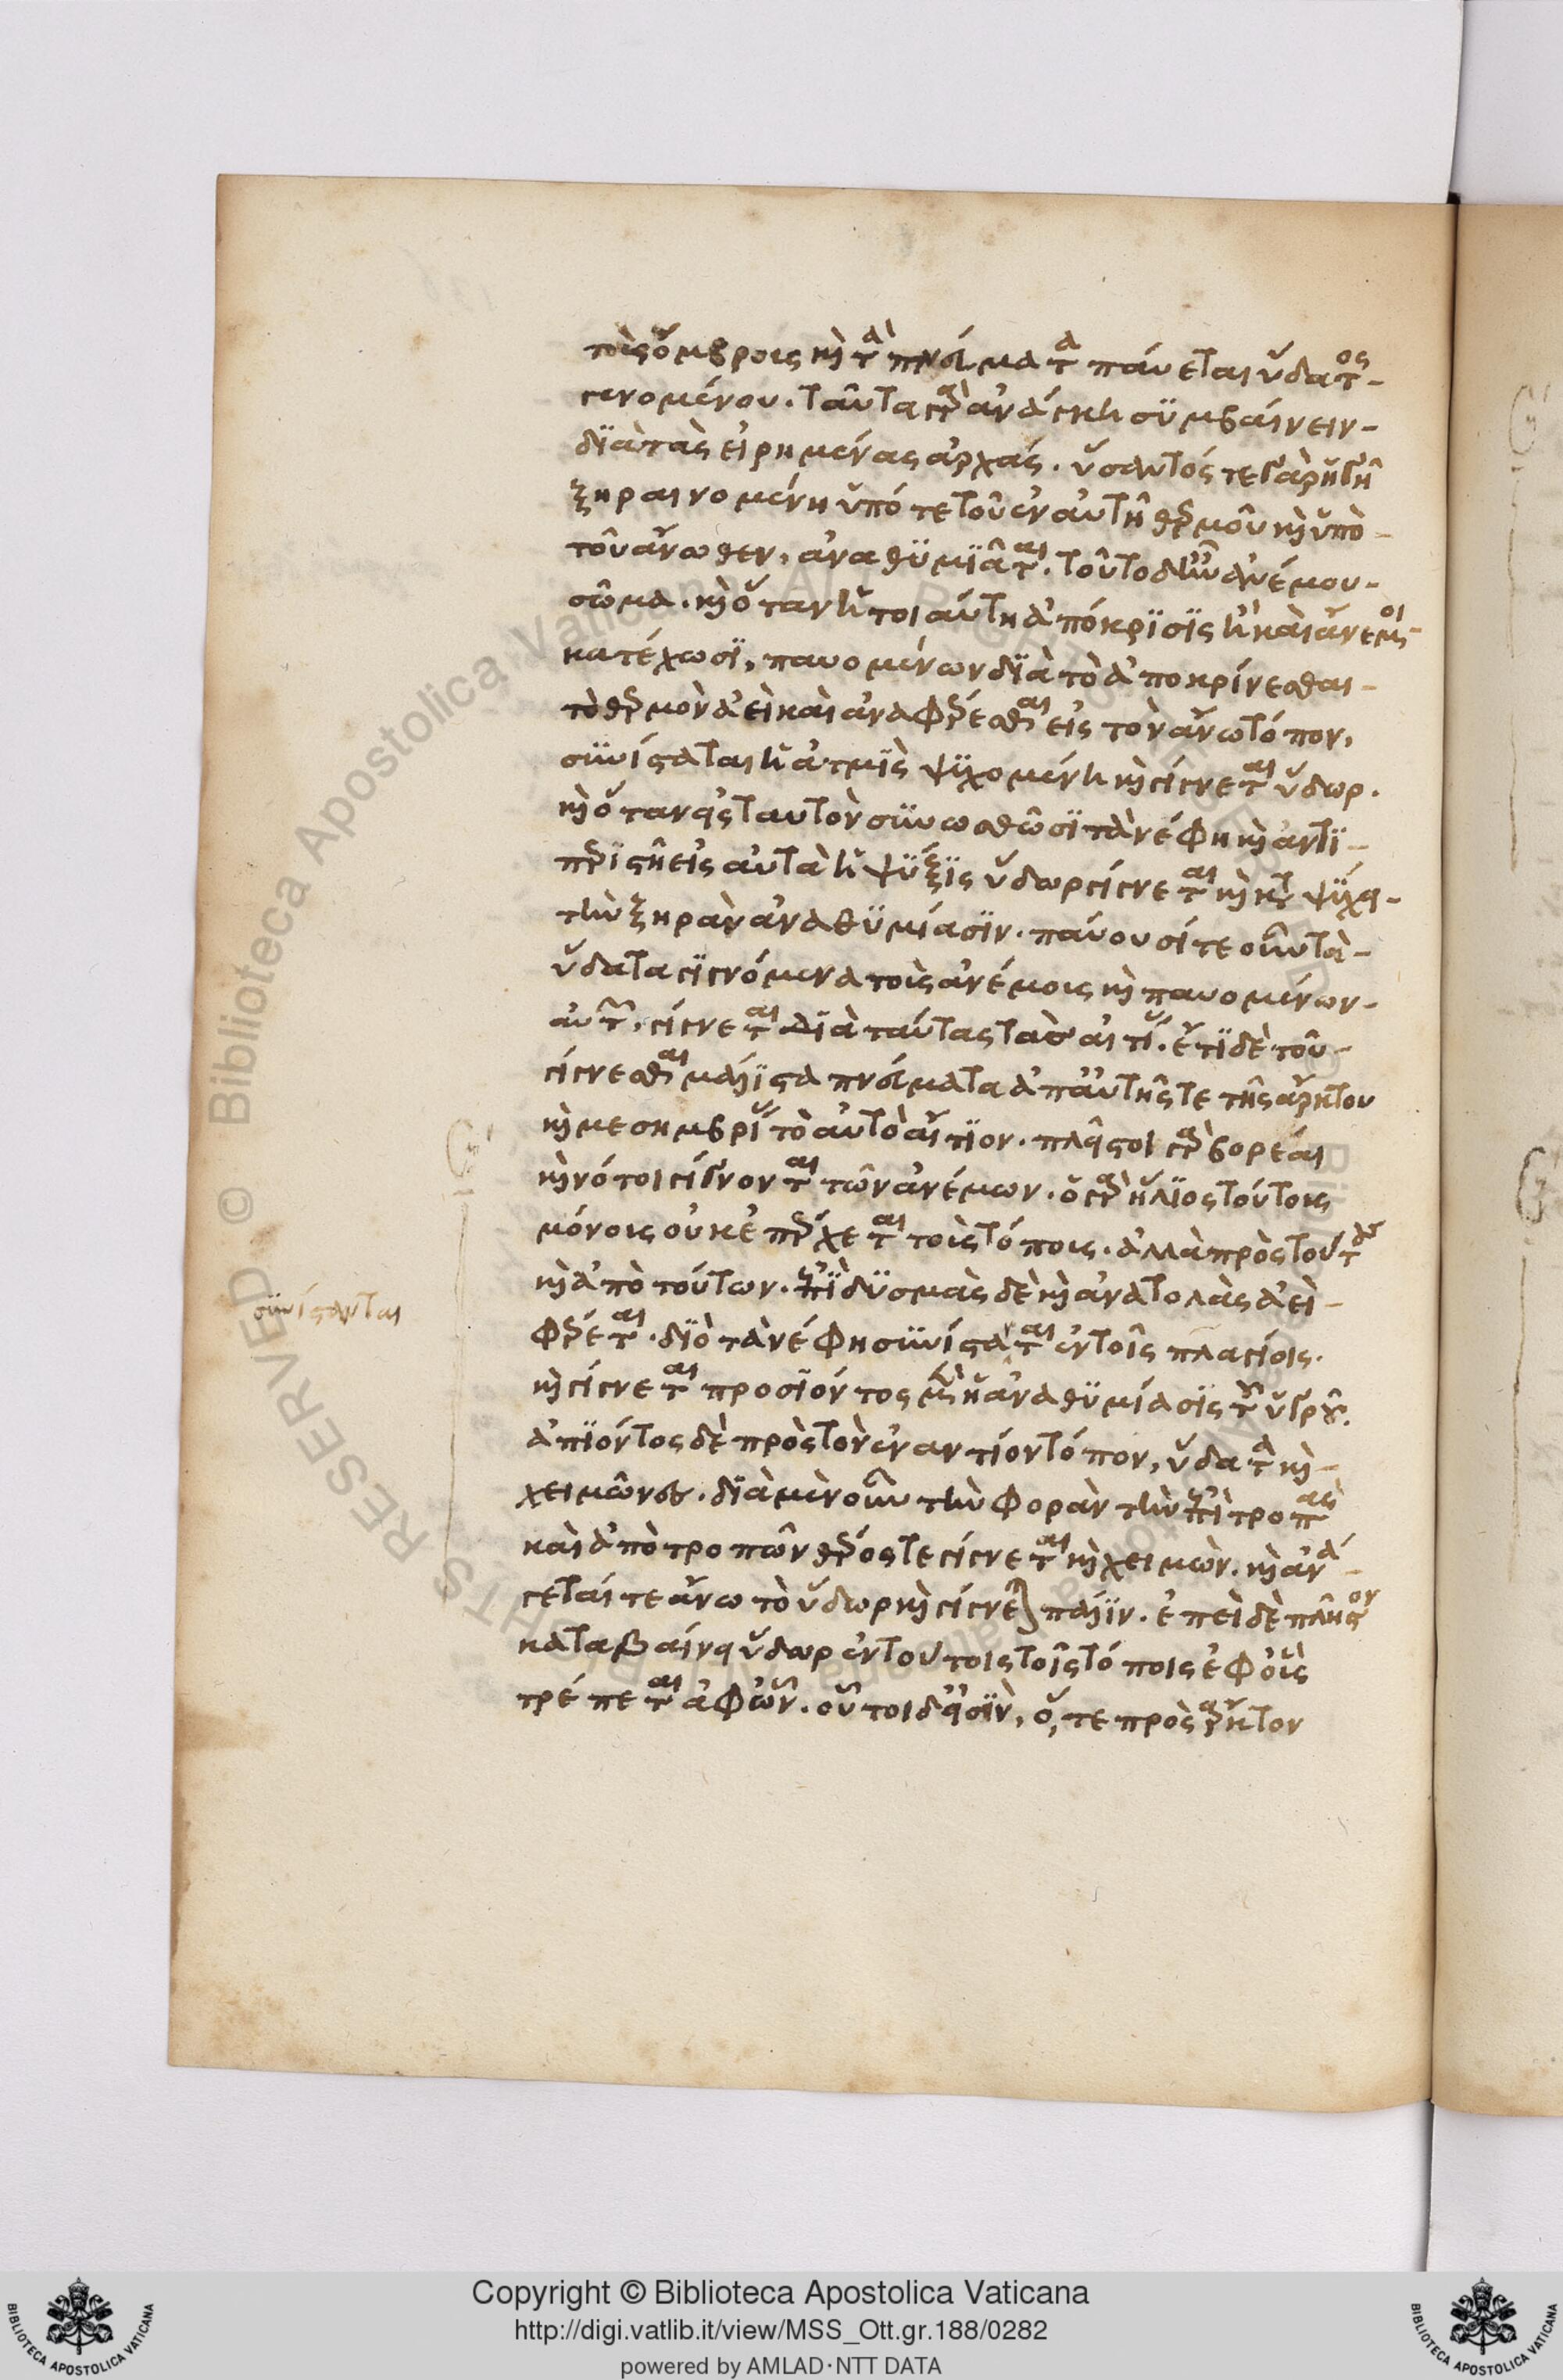 τοῖς ὄμβροις καὶ τὰ πνεύματα παύεται ὕδατος
γενομένου. ταῦτα γὰρ ἀνάγκη συμβαίνειν
διὰ τὰς εἰρημένας ἀρχάς. ὕσαντός τε γὰρ ἡ γῆ
ξηραινομένη ὑπό τε τοῦ ἐν αὐτῇ θερμοῦ καὶ ὑπὸ
τοῦ ἄνωθεν, ἀναθυμιᾶται. τοῦτο δ' ἦν ἀνέμου
σῶμα. καὶ ὅταν ἡ τοιαύτη ἀπόκρισις ᾖ καὶ ἄνεμοι
κατέχωσι, παυομένων διὰ τὸ ἀποκρίνεσθαι
τὸ θερμὸν ἀεὶ καὶ ἀναφέρεσθαι εἰς τὸν ἄνω τόπον,
συνίσταται ἡ ἀτμὶς ψυχομένη καὶ γίγνεται ὕδωρ.
καὶ ὅταν εἰς ταυτὸν συνωσθῶσι τὰ νέφη καὶ ἀντι
περιστῇ εἰς αὐτὰ ἡ ψύξις ὕδωρ γίγνεται καὶ καταψύχει
τὴν ξηρὰν ἀναθυμίασιν. παύουσί τε οὖν τὰ
ὕδατα γιγνόμενα τοὺς ἀνέμους καὶ παυομένων
αὐτῶν. γίγνεται διὰ ταύτας τὰς αἰτίας. ἔτι δὲ τοῦ
γίγνεσθαι μάλιστα πνεύματα ἀπ' αὐτῆς τε τῆς ἄρκτου
καὶ μεσημβρίας τὸ αὐτὸ αἴτιον. πλεῖστοι γὰρ βορέαι
καὶ νότοι γίγνονται τῶν ἀνέμων. ὁ γὰρ ἥλιος τούτους
μόνους οὐκ ἐπέρχεται τοὺς τόπους. ἀλλὰ πρὸς τούτους
καὶ ἀπὸ τούτων. ἐπὶ δυσμὰς δὲ καὶ ἀνατολὰς ἀεὶ
φέρεται. διὸ τὰ νέφη συνίσταται ἐν τοῖς πλαγίοις.
συνίστανται
καὶ γίγνεται προσιόντος μὲν ἡ ἀναθυμίασις τοῦ ὑγροῦ.
ἀπιόντος δὲ πρὸς τὸν ἐναντίον τόπον, ὕδατα καὶ
χειμῶνες. διὰ μὲν οὖν τὴν φορὰν τὴν ἐπὶ τροπὰς
καὶ ἀπὸ τροπῶν θέρος τε γίγνεται καὶ χειμών. καὶ ἀνά
γεταί τε ἄνω τὸ ὕδωρ καὶ γίγνεται πάλιν. ἐπεὶ δὲ πλεῖστον
καταβαίνει ὕδωρ ἐν τούτοις τοῖς τόποις ἐφ' οὓς
τρέπεται ἀφ' ὧν. οὗτοι δ' εἰσὶν, ὅ, τε πρὸς ἄρκτον
Copyright © Biblioteca Apostolica Vaticana
http://digi.vatlib.it/view/MSS_Ott.gr.188/0282
powered by AMLAD·NTT DATA